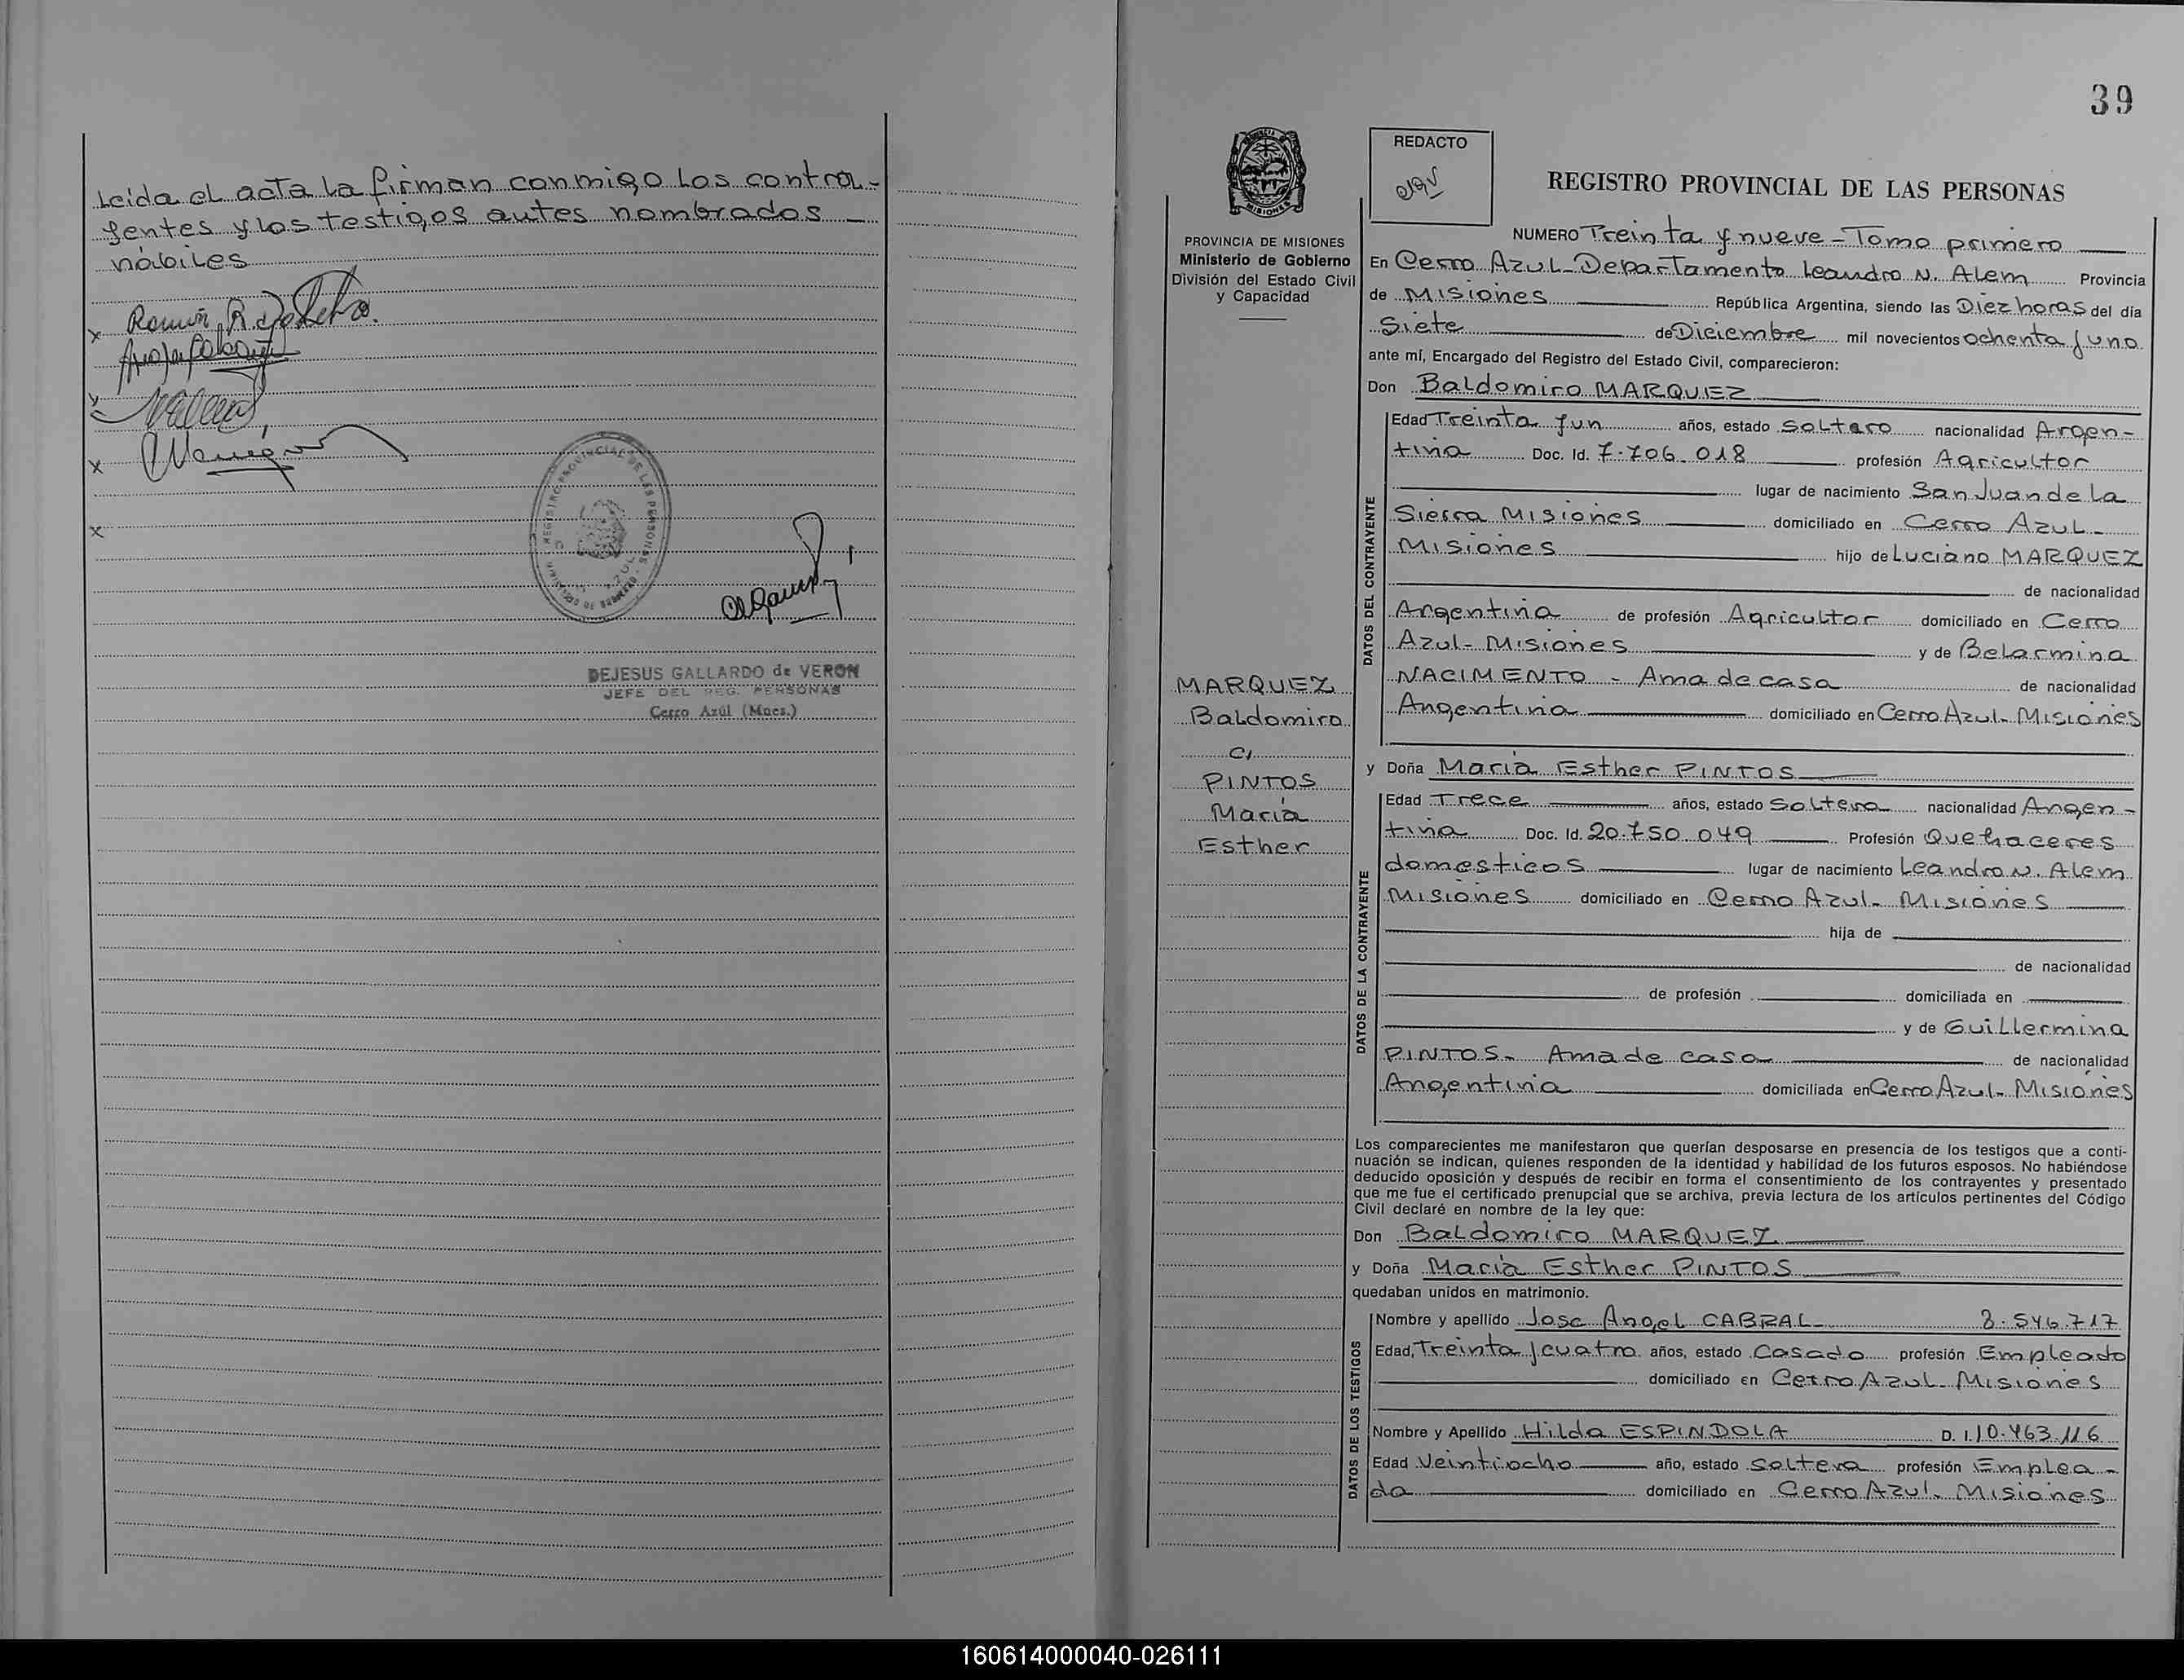 Leída el acta la firman conmigo los contra-
yentes y los testigos antes nombrados —
hábiles
x
x
x
REGISTRO PROVINCIAL DE LAS PERSONAS
DEJESUS GALLARDO de VERON
JEFE DEL REG. PERSONAS
Cerro Azúl (Mnes.)
39
PROVINCIA DE MISIONES
Ministerio de Gobierno
División del Estado Civil
y Capacidad
MARQUEZ
Baldomiro
C/
PINTOS
María
Esther
REDACTO
REGISTRO PROVINCIAL DE LAS PERSONAS
NUMERO Treinta y nueve - Tomo primero
En Cerro Azul - Departamento Leandro N. Alem Provincia
de Misiones República Argentina, siendo las Diez horas del día
Siete de Diciembre mil novecientos ochenta y uno
ante mí, Encargado del Registro del Estado Civil, comparecieron:
Don Baldomiro MARQUEZ
DATOS DEL CONTRAYENTE
Edad Treinta y un años, estado Soltero nacionalidad Argen-
tina Doc. Id. 7.706.018 profesión Agricultor
lugar de nacimiento San Juan de la
Sierra Misiones domiciliado en Cerro Azul -
Misiones hijo de Luciano MARQUEZ
de nacionalidad
Argentina de profesión Agricultor domiciliado en Cerro
Azul - Misiones y de Belarmina
NACIMENTO - Ama de casa de nacionalidad
Argentina domiciliado en Cerro Azul - Misiones
y Doña María Esther PINTOS
DATOS DE LA CONTRAYENTE
Edad Trece años, estado Soltera nacionalidad Argen-
tina Doc. Id. 20.750.049 Profesión Quehaceres
domesticos lugar de nacimiento Leandro N. Alem
Misiones domiciliado en Cerro Azul - Misiones
hija de
de nacionalidad
de profesión domiciliada en
y de Guillermina
PINTOS - Ama de casa de nacionalidad
Argentina domiciliada en Cerro Azul - Misiones
Los comparecientes me manifestaron que querían desposarse en presencia de los testigos que a conti-
nuación se indican, quienes responden de la identidad y habilidad de los futuros esposos. No habiéndose
deducido oposición y después de recibir en forma el consentimiento de los contrayentes y presentado
que me fue el certificado prenupcial que se archiva, previa lectura de los artículos pertinentes del Código
Civil declaré en nombre de la ley que:
Don Baldomiro MARQUEZ
y Doña María Esther PINTOS
quedaban unidos en matrimonio.
DATOS DE LOS TESTIGOS
Nombre y apellido Jose Angel CABRAL 8.546.717
Edad, Treinta y cuatro años, estado Casado profesión Empleado
domiciliado en Cerro Azul - Misiones
Nombre y Apellido Hilda ESPINDOLA D. I. 10.463.116
Edad Veintiocho año, estado Soltera profesión Emplea-
da domiciliado en Cerro Azul - Misiones
160614000040-026111